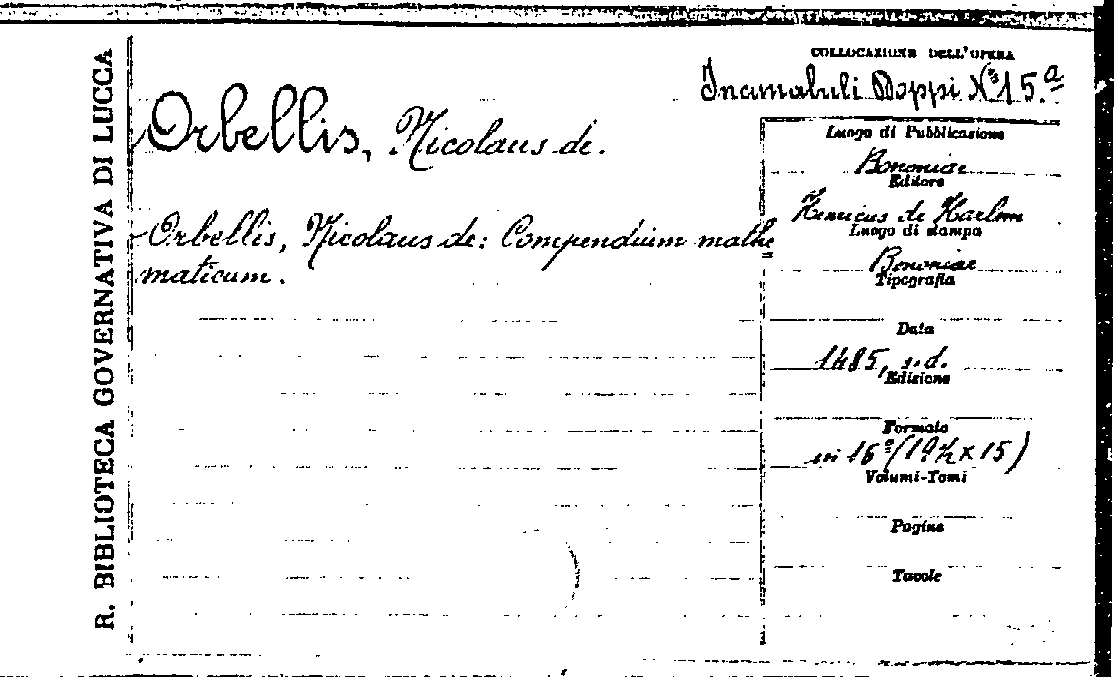 R. BIBLIOTECA GOVERNATIVA DI LUCCA
COLLOCAZIONE DELL'OPERA
Incunabuli Doppi N° 15.a
Orbellis, Nicolaus de.
Orbellis, Nicolaus de: Compendium mathe=
maticum.
Luogo di Pubblicazione
Bononiae
Editore
Henricus de Harlem
Luogo di stampa
Bononiae
Tipografia
Data
1485, s.d.
Edizione
Formato
in 16° (19½ x 15)
Volumi-Tomi
Pagine
Tavole